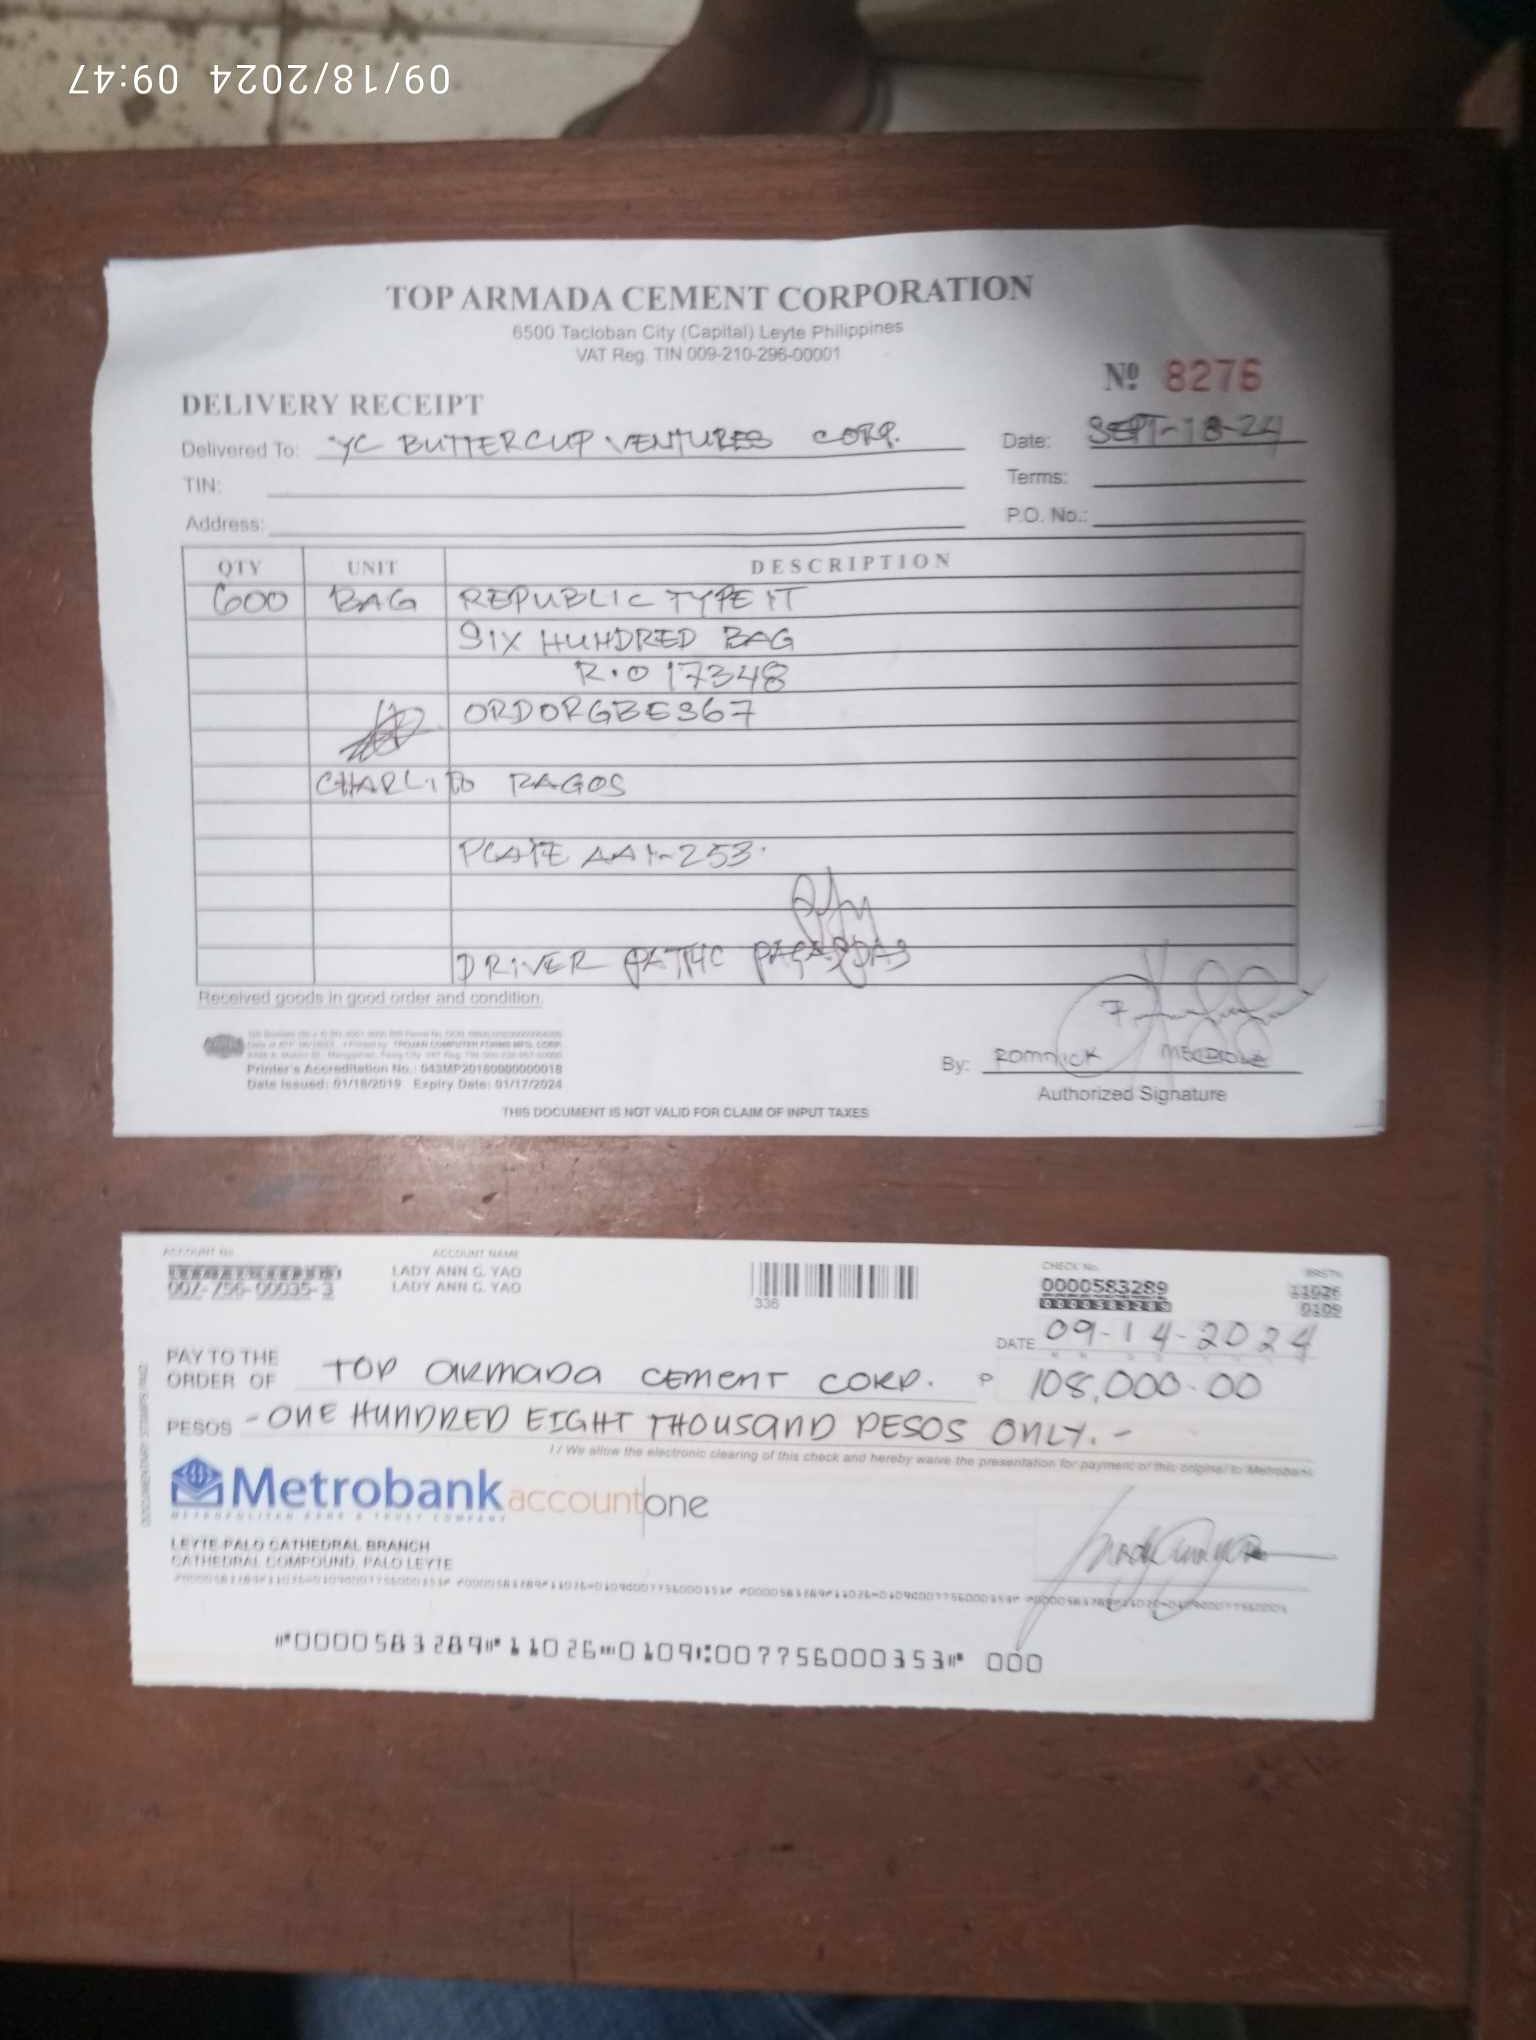 09/18/2024 09:47
TOP ARMADA CEMENT CORPORATION
6500 Tacloban City (Capital) Leyte Philippines
VAT Reg. TIN 009-210-296-00001
Nº 8276
DELIVERY RECEIPT
Delivered To: YC BUTTERCUP VENTURES CORP. Date: SEPT-18-24
TIN: Terms:
Address: P.O. No.:
QTY UNIT DESCRIPTION
600 BAG REPUBLIC TYPE 1T
SIX HUNDRED BAG
R.O 17348
ORDORGBE367
CHARLITO RAGOS
PLATE AAY-253
DRIVER
Received goods in good order and condition.
Printer's Accreditation No.: 043MP20180000000018
Date Issued: 01/18/2019 Expiry Date: 01/17/2024
By: ROMNICK
Authorized Signature
THIS DOCUMENT IS NOT VALID FOR CLAIM OF INPUT TAXES
ACCOUNT No. ACCOUNT NAME CHECK No. BRSTN
007-756-00035-3 LADY ANN G. YAO 0000583289 11026
LADY ANN G. YAO 0000583289 0109
336
DATE 09-14-2024
PAY TO THE
ORDER OF TOP ARMADA CEMENT CORP. P 108,000.00
PESOS - ONE HUNDRED EIGHT THOUSAND PESOS ONLY. -
I / We allow the electronic clearing of this check and hereby waive the presentation for payment of this original to Metrobank
Metrobank accountone
METROPOLITAN BANK & TRUST COMPANY
LEYTE-PALO CATHEDRAL BRANCH
CATHEDRAL COMPOUND, PALO LEYTE
⑈0000583289⑈11026⑉0109⑆007756000353⑈ 000